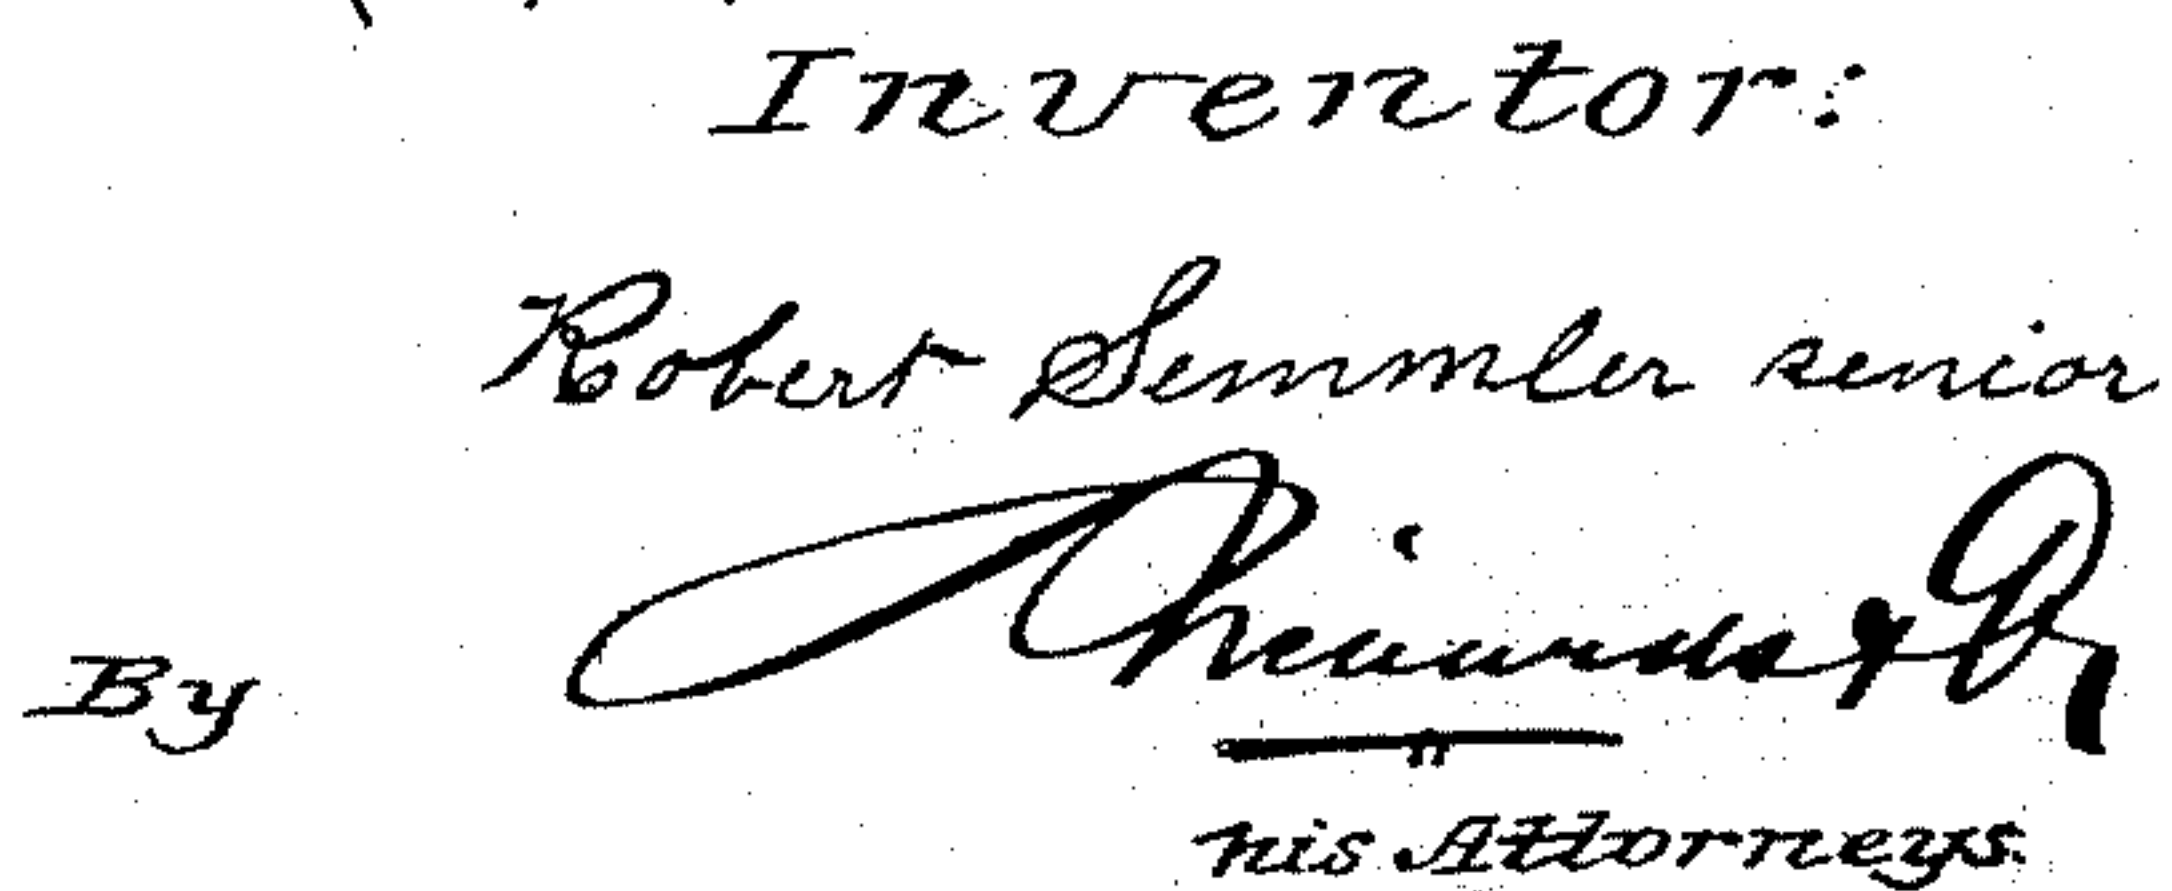 Inventor:
Robert Semmler senior
By
his Attorneys.